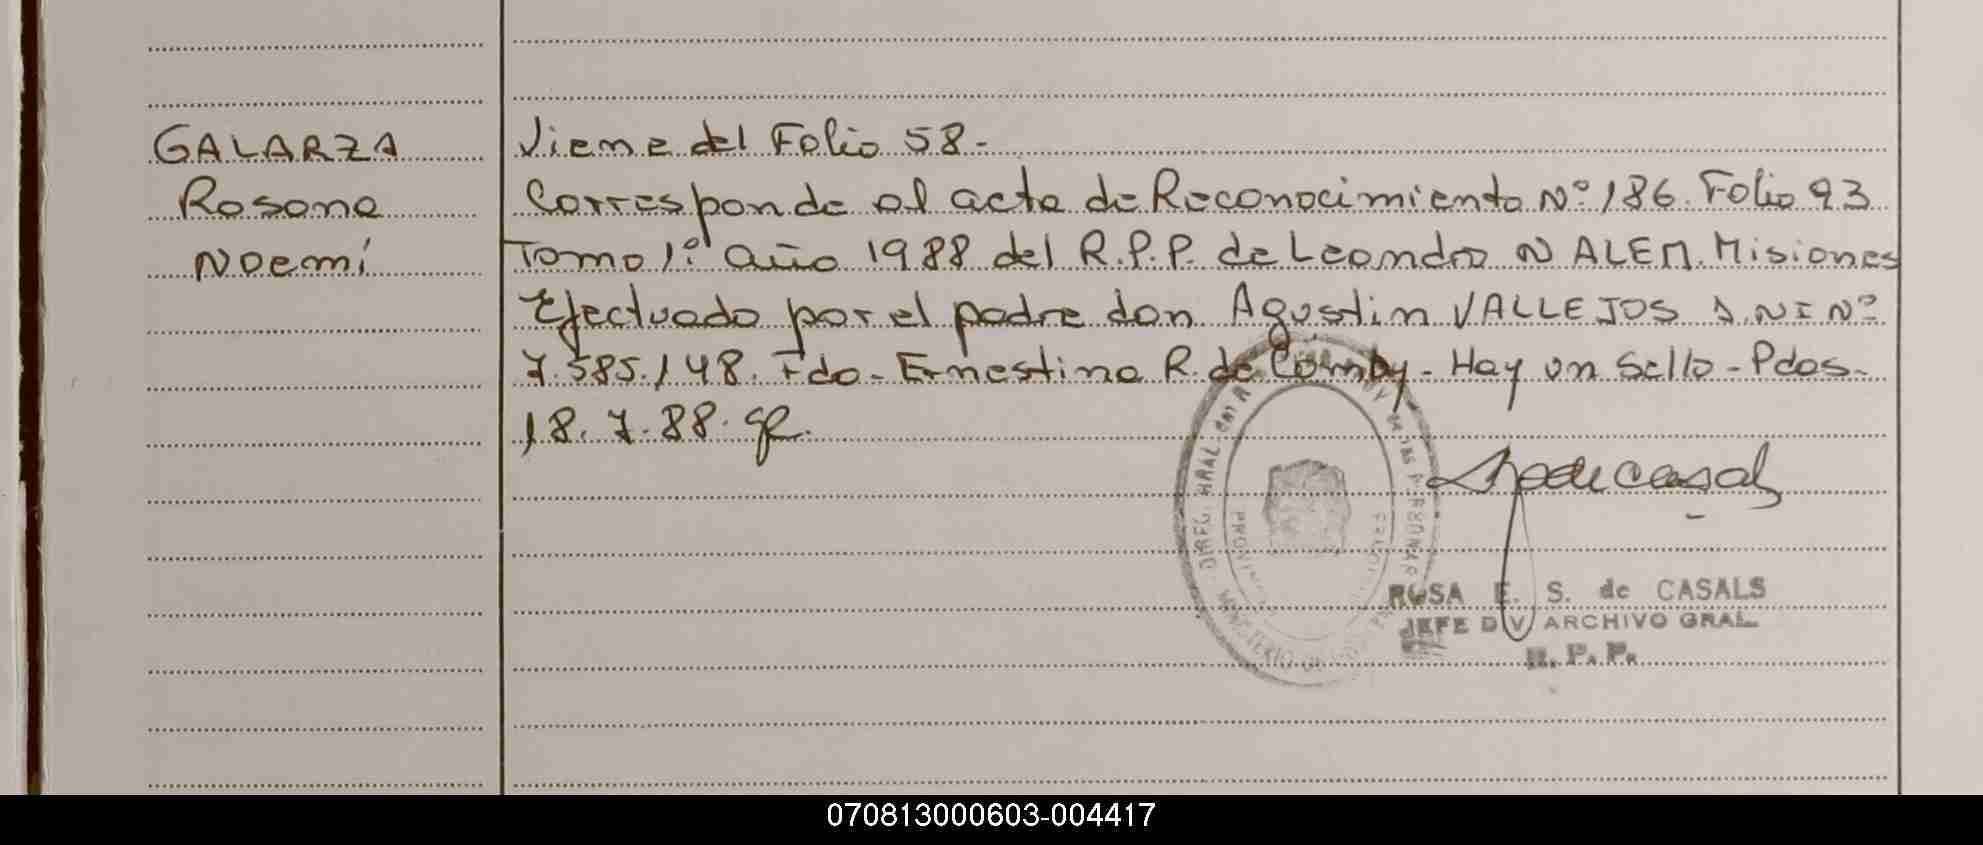 GALARZA
Rosana
Noemí
Viene del Folio 58.-
Corresponde al acta de Reconocimiento Nº 186. Folio 93
Tomo 1º. año 1988 del R.P.P. de Leandro N ALEM. Misiones
Efectuado por el padre don Agustin VALLEJOS D.N.I Nº
7.585.148. Fdo- Ernestina R. de Comby - Hay un sello - Pdas-
18.7.88.
ROSA E. S. de CASALS
JEFE DIV ARCHIVO GRAL.
R. P. P.
070813000603-004417